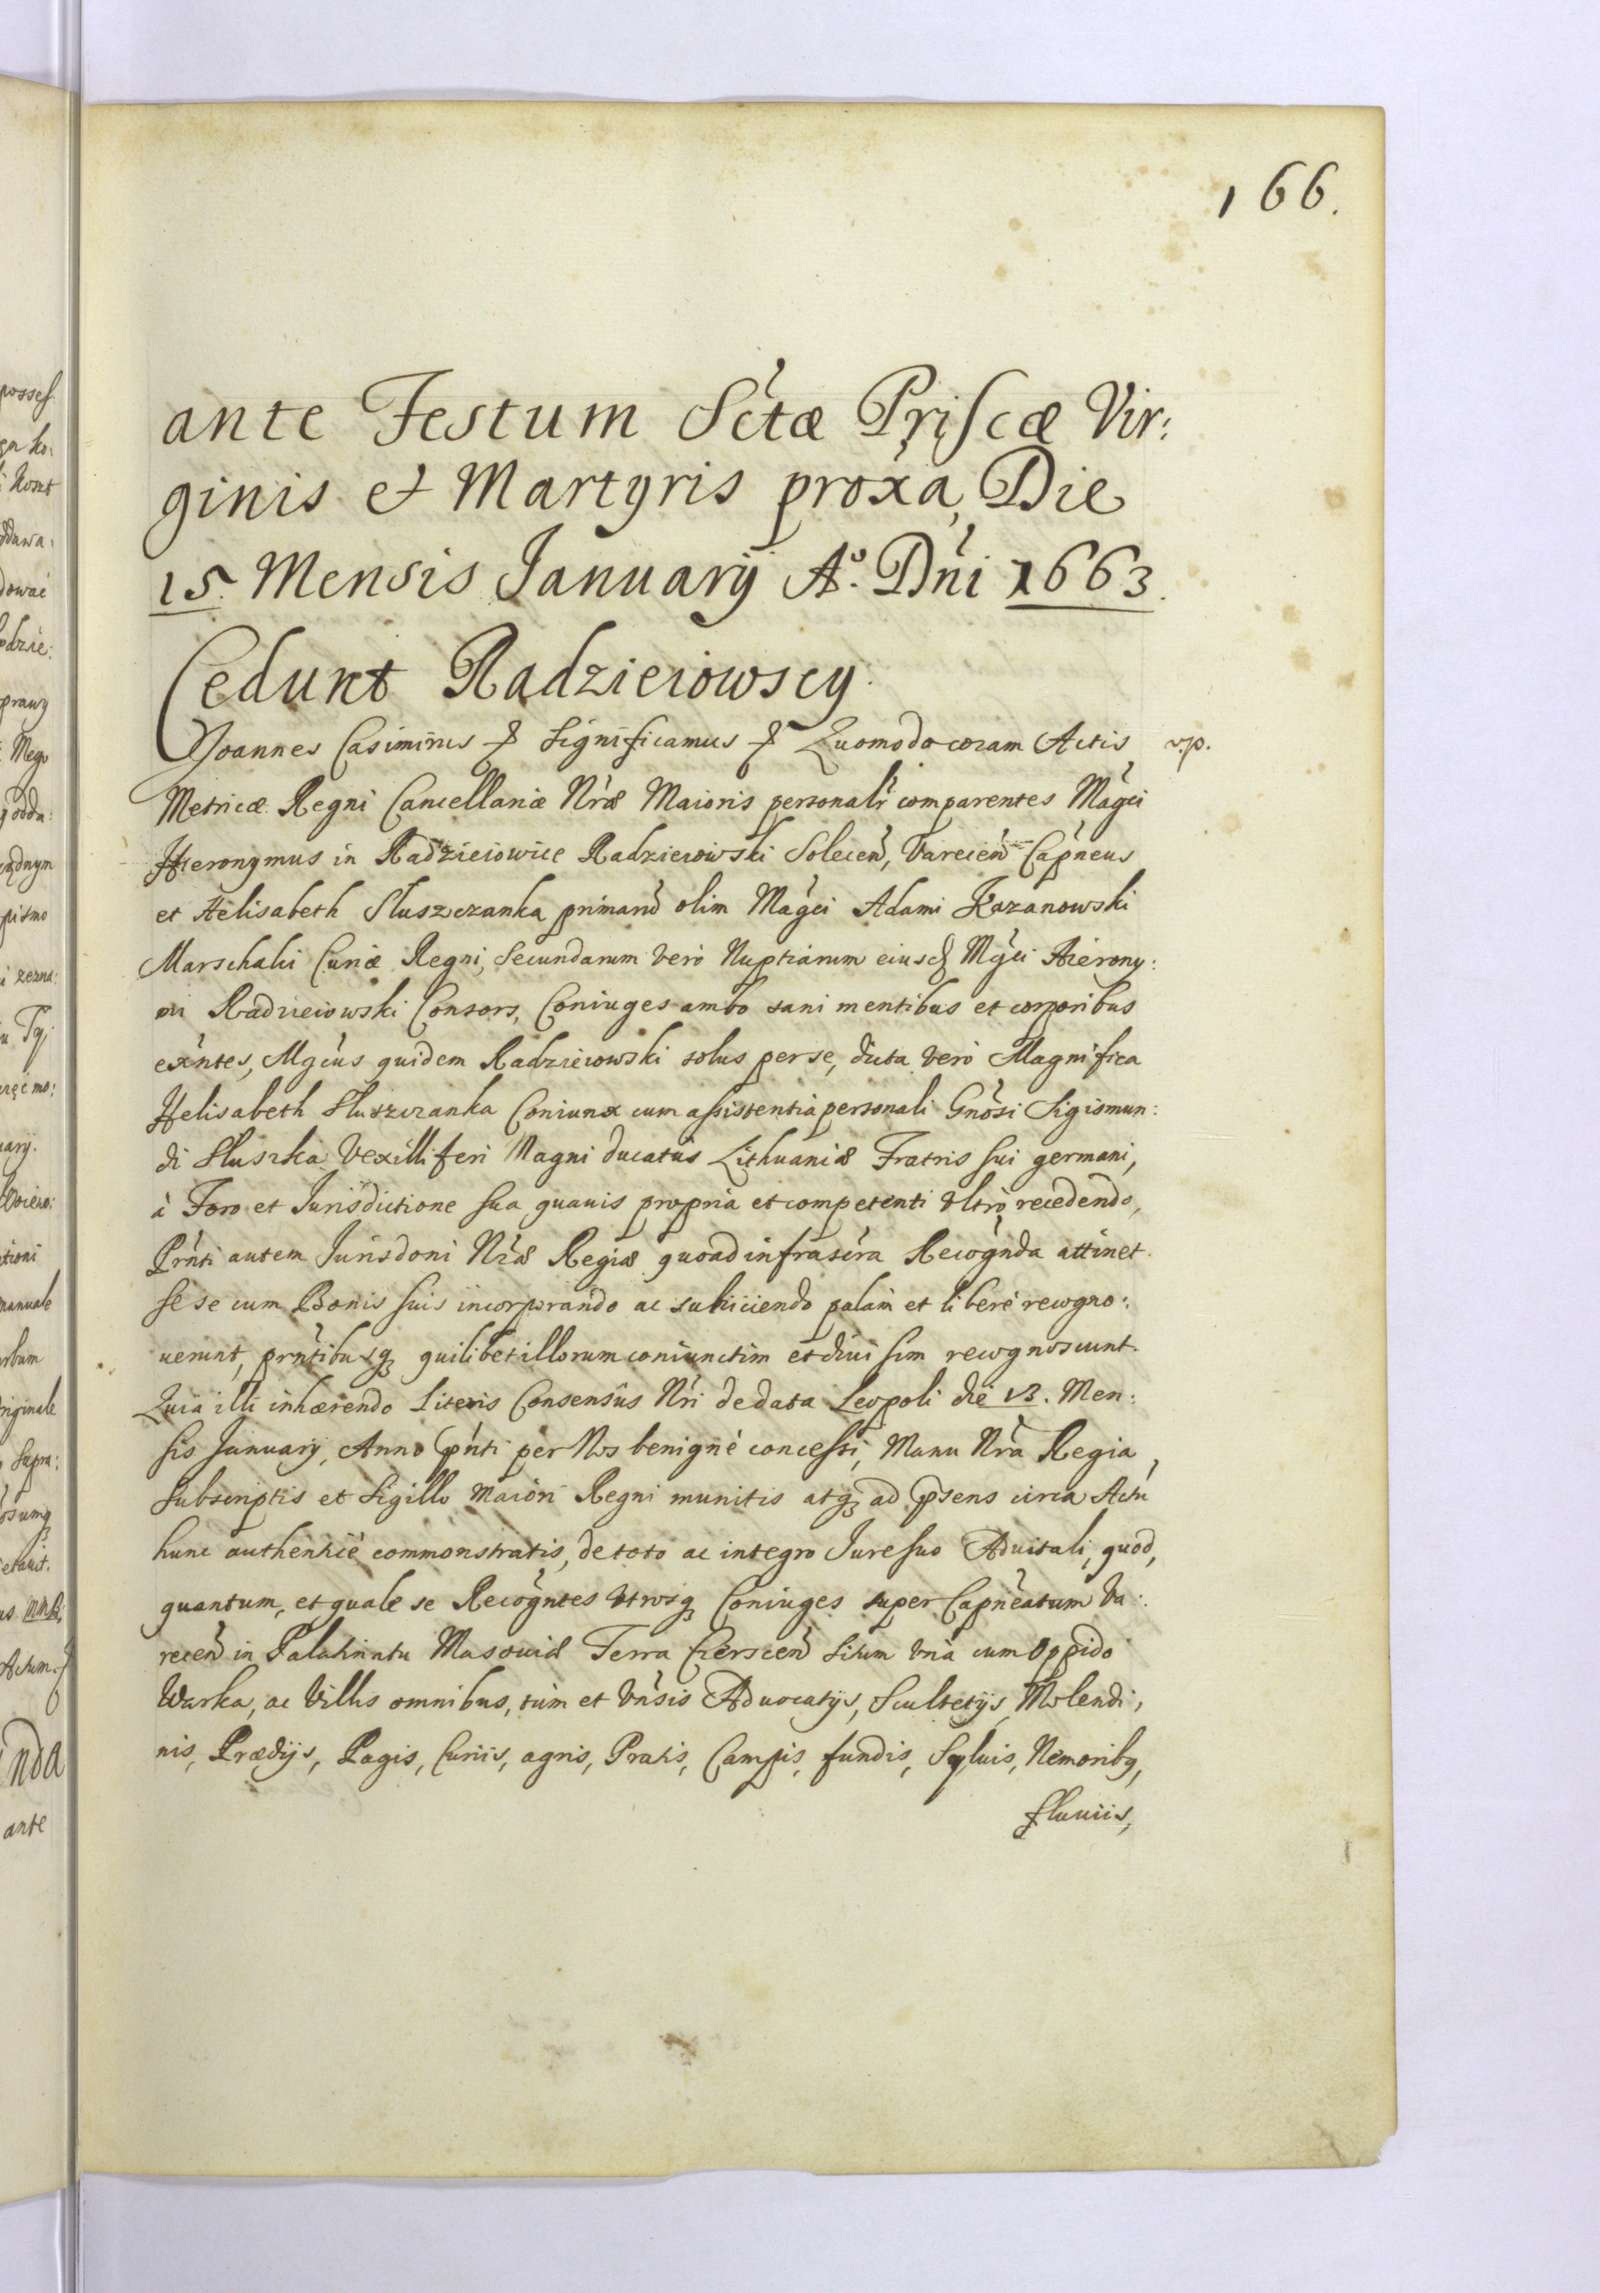 166.
ante Festum Sctæ Priscæ Vir:
ginis et Martyris proxa, Die
15. Mensis Januarÿ Aº. Dni 1663.
Cedunt Radzieiowscy.
Joannes Casimirus & Significamus & Quomodo coram Actis vp.
Metricæ Regni Cancellariæ Nræ Maioris personalr comparentes Magci
Hieronymus in Radzieiowice Radzieiowski Solecen, Varecen Capneus
et Helisabeth Sluszczanka primarũ olim Magci Adami Kazanowski
Marschalci Curiæ Regni, Secundarum verò Nuptiarum eiusd Mgci Hierony:
mi Radzieiowski Consors, Coniuges ambo sani mentibus et corporibus
exntes, Mgcus quidem Radzieiowski solus per se, dicta verò Magnifica
Helisabeth Sluszczanka Coniunx cum assistentia personali Gnosi Sigismun:
di Sluszka Vexilliferi Magni ducatus Lithuaniæ Fratris sui germani,
à Foro et Jurisdictione sua quauis propria et competenti vltrò recedendo,
Prnti autem Jurisdoni Nræ Regiæ quoad infrascra Recognda attinet
se se cum Bonis suis incorporando ac subiiciendo palàm et liberè recogno:
uerunt, prntibusq quilibet illorum coniunctim et diuisim recognoscunt.
Quia illi inhærendo Literis Consensûs Nri de data Leopoli die 13. Men:
sis Januarÿ, Anno pnti per Nos benignè concessi, Manu Nra Regia,
subscriptis et Sigillo Maiori Regni munitis atq ad psens circa Actũ
hunc authenticè commonstratis, de toto ac integro Jure suo Aduitali, quod,
quantum, et quale se Recogntes vtrosq Coniuges super Capneatum Va:
recen in Palatinatu Masouiæ Terra Czerscen situm vnà cum Oppido
Warka, ac Villis omnibus, tùm et Vnsis Aduocatÿs, Scultetÿs, Molendi:
nis, Prædÿs, Pagis, Curiis, agris, Pratis, Campis, fundis, Syluis, Nemoribq,
fluuiis,